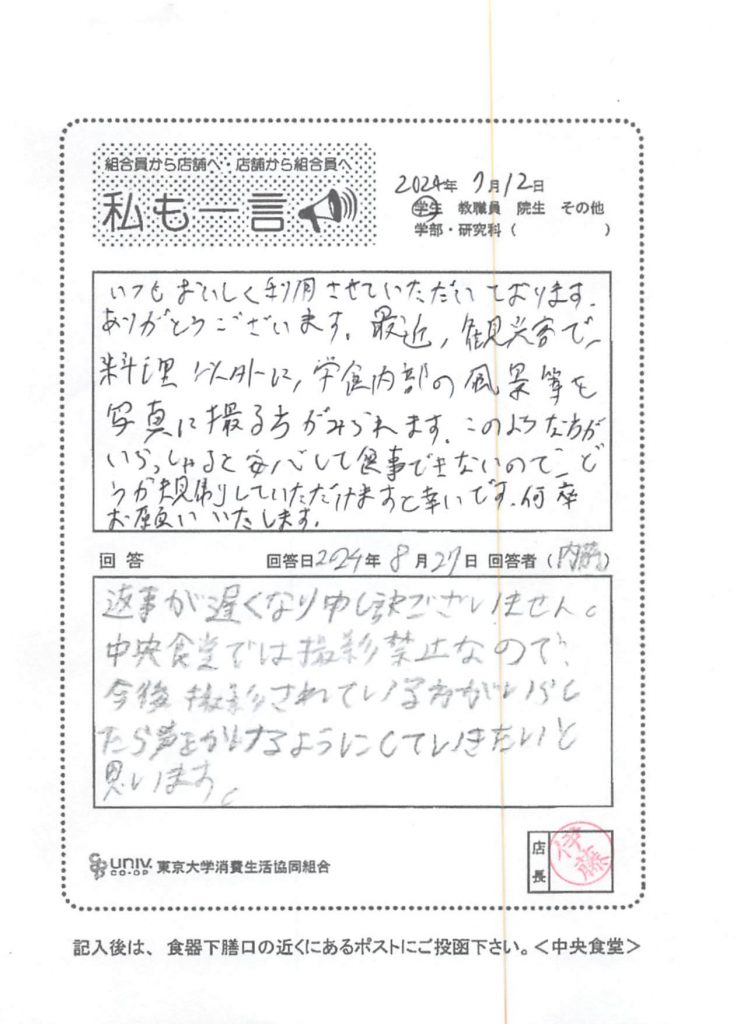 組合員から店舗へ・店舗から組合員へ
私も一言
2024年 7月12日
学生 教職員 院生 その他
学部・研究科（ ）
いつもおいしく利用させていただいております。
ありがとうございます。最近、観光客で、
料理以外に、学食内部の風景等を
写真に撮る方がみられます。このような方が
いらっしゃると安心して食事できないので、ど
うか規制していただけますと幸いです。何卒
お願いいたします。
回答 回答日2024年 8月27日 回答者（内藤）
返事が遅くなり申し訳ございません。
中央食堂では撮影禁止なので、
今後撮影されている方がいらし
たら声をかけるようにしていきたいと
思います。
UNIV. CO-OP 東京大学消費生活協同組合
店長 伊藤
記入後は、食器下膳口の近くにあるポストにご投函下さい。＜中央食堂＞